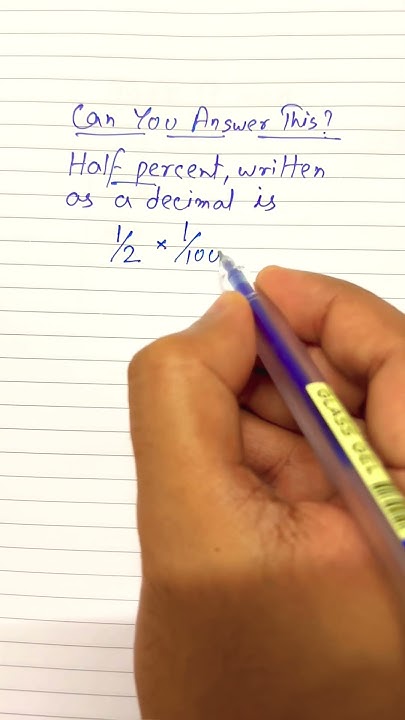 Can You Answer This?
Half percent, written
as a decimal is
1/2 × 1/100
GLASS GEL